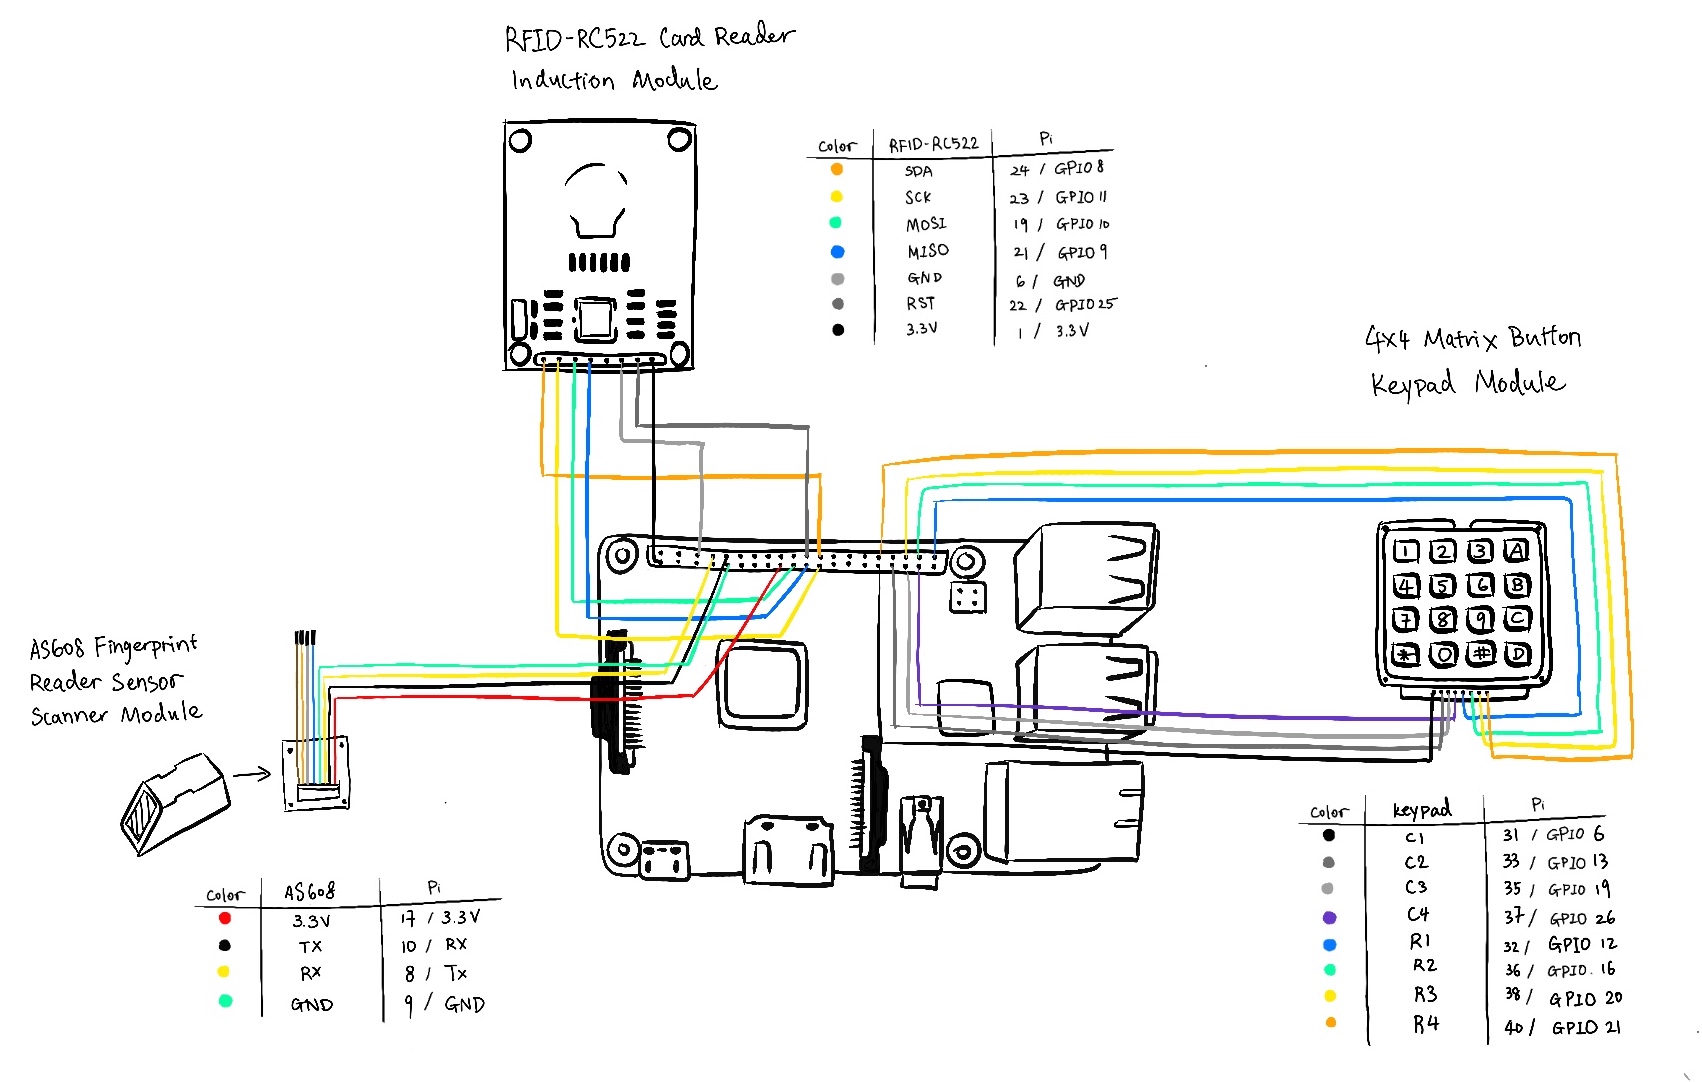 RFID-RC522 Card Reader
Induction Module
Color RFID-RC522 Pi
SDA 24 / GPIO 8
SCK 23 / GPIO 11
MOSI 19 / GPIO 10
MISO 21 / GPIO 9
GND 6 / GND
RST 22 / GPIO 25
3.3V 1 / 3.3V
4x4 Matrix Button
Keypad Module
1 2 3 A
4 5 6 B
7 8 9 C
* 0 # D
AS608 Fingerprint
Reader Sensor
Scanner Module
Color AS608 Pi
3.3V 17 / 3.3V
TX 10 / RX
RX 8 / Tx
GND 9 / GND
Color Keypad Pi
C1 31 / GPIO 6
C2 33 / GPIO 13
C3 35 / GPIO 19
C4 37 / GPIO 26
R1 32 / GPIO 12
R2 36 / GPIO. 16
R3 38 / GPIO 20
R4 40 / GPIO 21